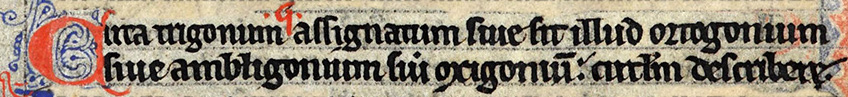 Circa trigonum assignatum siue sit illud ortogonium
siue ambligonium siui oxigoniū. circłm describere.